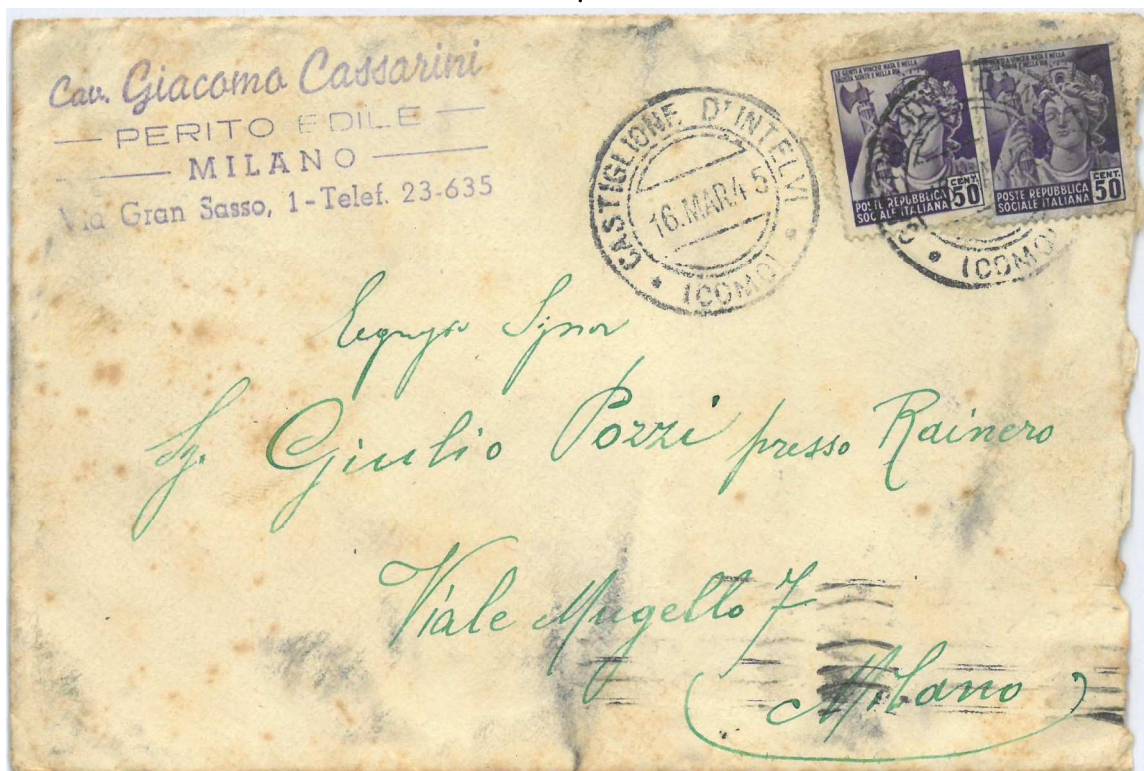 Cav. Giacomo Cassarini
— PERITO EDILE —
— MILANO —
Via Gran Sasso, 1 - Telef. 23-635
CASTIGLIONE D'INTELVI
16.MAR.45
(COMO)
POSTE REPUBBLICA
SOCIALE ITALIANA
CENT.
50
POSTE REPUBBLICA
SOCIALE ITALIANA
CENT.
50
(COMO)
Egregio Signor
Sg. Giulio Pozzi presso Rainero
Viale Mugello 7
Milano